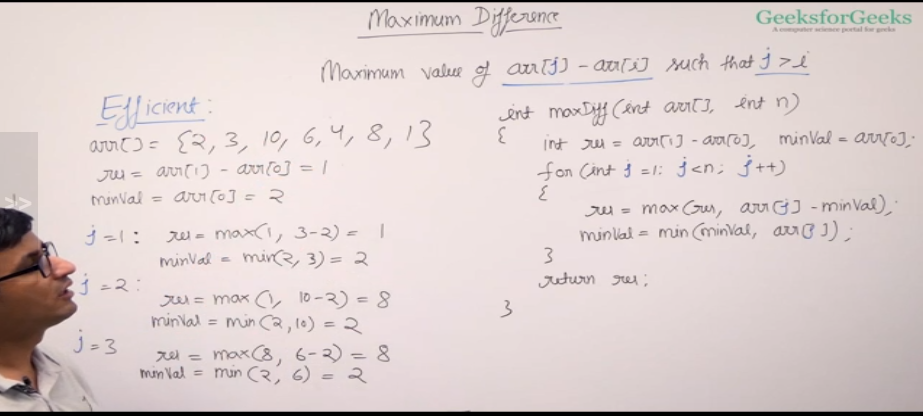 Maximum Difference
GeeksforGeeks
A computer science portal for geeks
Maximum value of arr[j] - arr[i] such that j > i
Efficient:
arr[] = {2, 3, 10, 6, 4, 8, 1}
res = arr[1] - arr[0] = 1
minVal = arr[0] = 2
j = 1: res = max(1, 3-2) = 1
minVal = min(2, 3) = 2
j = 2: 
res = max(1, 10-2) = 8
minVal = min(2, 10) = 2
j = 3 res = max(8, 6-2) = 8
minVal = min(2, 6) = 2
int maxDiff(int arr[], int n)
{ int res = arr[1] - arr[0], minVal = arr[0];
for (int j = 1; j < n; j++)
{
res = max(res, arr[j] - minVal);
minVal = min(minVal, arr[j]);
}
return res;
}